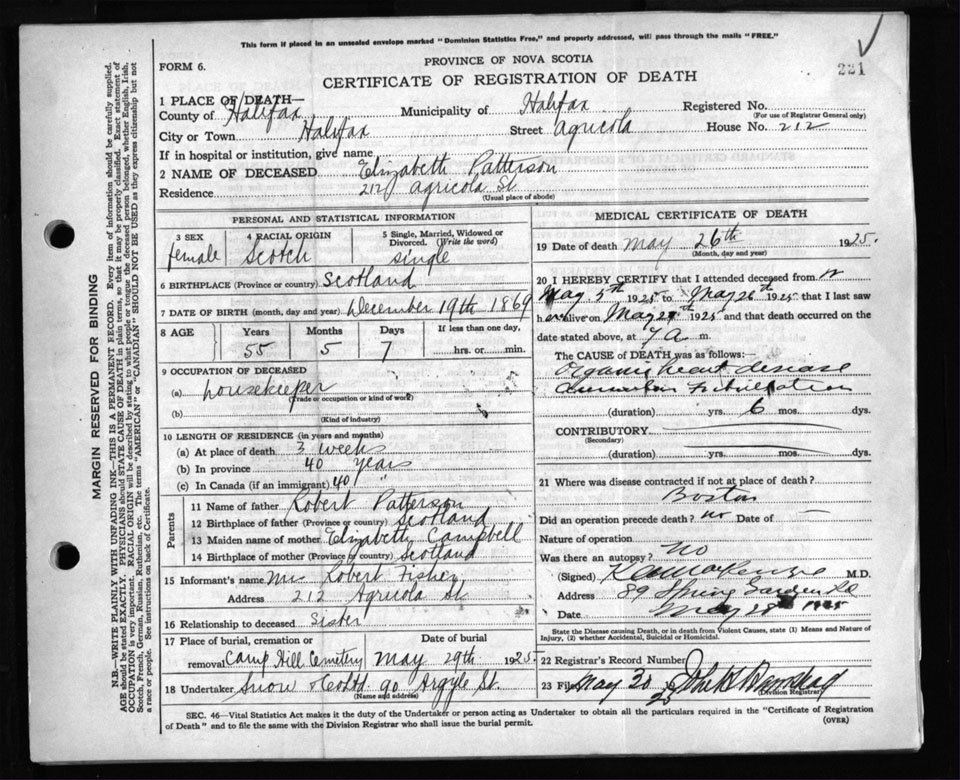 This form if placed in an unsealed envelope marked "Dominion Statistics Free," and properly addressed, will pass through the mails "FREE."
221
FORM 6.
PROVINCE OF NOVA SCOTIA
CERTIFICATE OF REGISTRATION OF DEATH
1 PLACE OF DEATH—
County of Halifax Municipality of Halifax Registered No.
(For use of Registrar General only)
City or Town Halifax Street Agricola House No. 212
If in hospital or institution, give name
2 NAME OF DECEASED Elizabeth Patterson
Residence 212 Agricola St
(Usual place of abode)
PERSONAL AND STATISTICAL INFORMATION
3 SEX
female
4 RACIAL ORIGIN
Scotch
5 Single, Married, Widowed or Divorced. (Write the word)
single
6 BIRTHPLACE (Province or country) Scotland
7 DATE OF BIRTH (month, day and year) December 19th 1869
8 AGE Years Months Days If less than one day,
55 5 7 hrs. or min.
9 OCCUPATION OF DECEASED
(a) housekeeper
(Trade or occupation or kind of work)
(b)
(Kind of industry)
10 LENGTH OF RESIDENCE (in years and months)
(a) At place of death 3 weeks
(b) In province 40 years
(c) In Canada (if an immigrant) 40 "
Parents
11 Name of father Robert Patterson
12 Birthplace of father (Province or country) Scotland
13 Maiden name of mother Elizabeth Campbell
14 Birthplace of mother (Province or country) Scotland
15 Informant's name Mrs Robert Fisher
Address 212 Agricola St.
16 Relationship to deceased Sister
17 Place of burial, cremation or removal Camp Hill Cemetery
Date of burial
May 29th 1925.
18 Undertaker Snow & Co Ltd. 90 Argyle St.
(Name and address)
MEDICAL CERTIFICATE OF DEATH
19 Date of death May 26th 1925.
(Month, day and year)
20 I HEREBY CERTIFY that I attended deceased from
May 5th 1925 to May 26th 1925 that I last saw
her alive on May 1925 and that death occurred on the
date stated above, at 7 A m.
The CAUSE of DEATH was as follows:—
Organic heart disease
Auricular Fibrillation
(duration) yrs. 6 mos. dys.
CONTRIBUTORY
(Secondary)
(duration) yrs. mos. dys.
21 Where was disease contracted if not at place of death?
Boston
Did an operation precede death? no Date of —
Nature of operation
Was there an autopsy? no
(Signed) MacKenzie M.D.
Address 89 Spring Garden Rd
Date May 28th 1925
State the Disease causing Death, or in death from Violent Causes, state (1) Means and Nature of
Injury, (2) whether Accidental, Suicidal or Homicidal.
22 Registrar's Record Number
23 Filed May 30 1925
(Division Registrar)
SEC. 46—Vital Statistics Act makes it the duty of the Undertaker or person acting as Undertaker to obtain all the particulars required in the "Certificate of Registration
of Death" and to file the same with the Division Registrar who shall issue the burial permit.
(OVER)
MARGIN RESERVED FOR BINDING
N.B.—WRITE PLAINLY WITH UNFADING INK—THIS IS A PERMANENT RECORD. Every item of information should be carefully supplied.
AGE should be stated EXACTLY. PHYSICIANS should STATE CAUSE OF DEATH in plain terms, so that it may be properly classified. Exact statement of
OCCUPATION is very important. RACIAL ORIGIN will be described by stating to what people or tongue the deceased person belonged, whether English, Irish,
Scotch, French, German, Russian, Ruthenian, etc. The terms "AMERICAN" or "CANADIAN" SHOULD NOT BE USED as they express citizenship but not
a race or people. See instructions on back of Certificate.